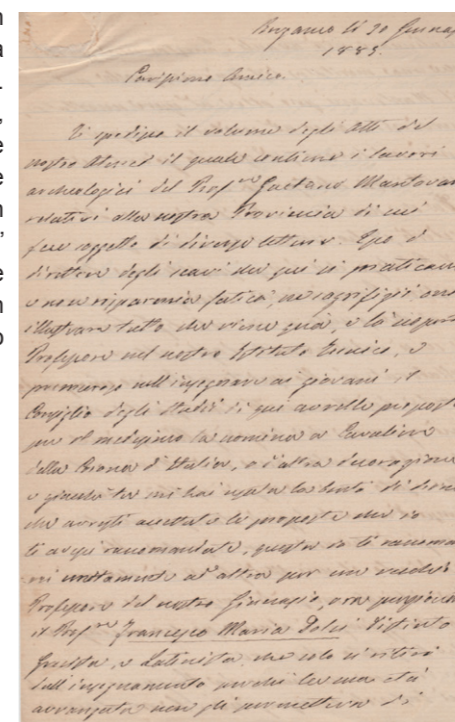 Bergamo li 20 Genna
1885.
Carissimo Amico.
Ti spedisco il volume degli Atti del
nostro Ateneo il quale contiene i lavori
archeologici del Prof.re Gaetano Mantovan
relativi alla nostra Provincia di cui
fece soggetto di diverse letture. Esso è
direttore degli scavi che qui si praticano
e non risparmia fatica, ne sagrifizi onde
illustrare tutto che viene quà, e là scoperto
Professore nel nostro Istituto tecnico, e
premuroso nell'insegnare ai giovani, il
Consiglio degli Studii di qui avrebbe proposto
per il medesimo la nomina a Cavaliere
della Corona d'Italia, o d'altra decorazione
e giacchè tu mi hai usata la bontà di
che avresti accettate le proposte che io
ti avessi raccomandate, questa io ti raccoman
unitamente ad altra per un
Professore del nostro Ginnasio, ora
il Prof.re Francesco Maria Dolci distinto
Latinista che solo si ritirò
dall'insegnamento perchè la sua età
avanzata non gli permetteva di